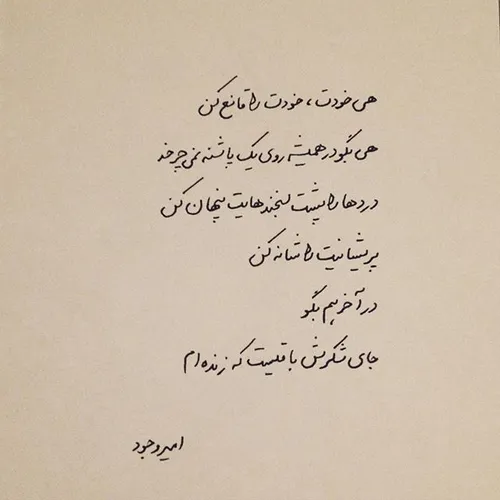 هی خودت، خودت را قانع کن
هی بگو در همیشه روی یک پاشنه نمی چرخد
دردها را پشت لبخندهایت پنهان کن
پریشانیت را شانه کن
در آخر هم بگو
جای شکرش باقیست که زنده ام
امیر وجود